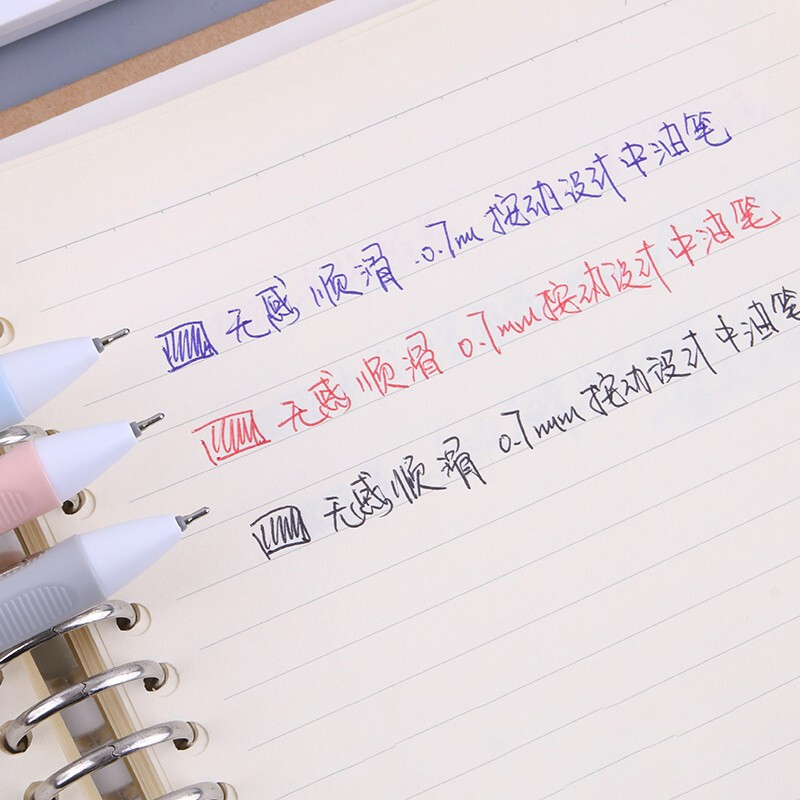 无感顺滑 0.7mm 按动设计中油笔
无感顺滑 0.7mm按动设计中油笔
无感顺滑 0.7mm按动设计中油笔